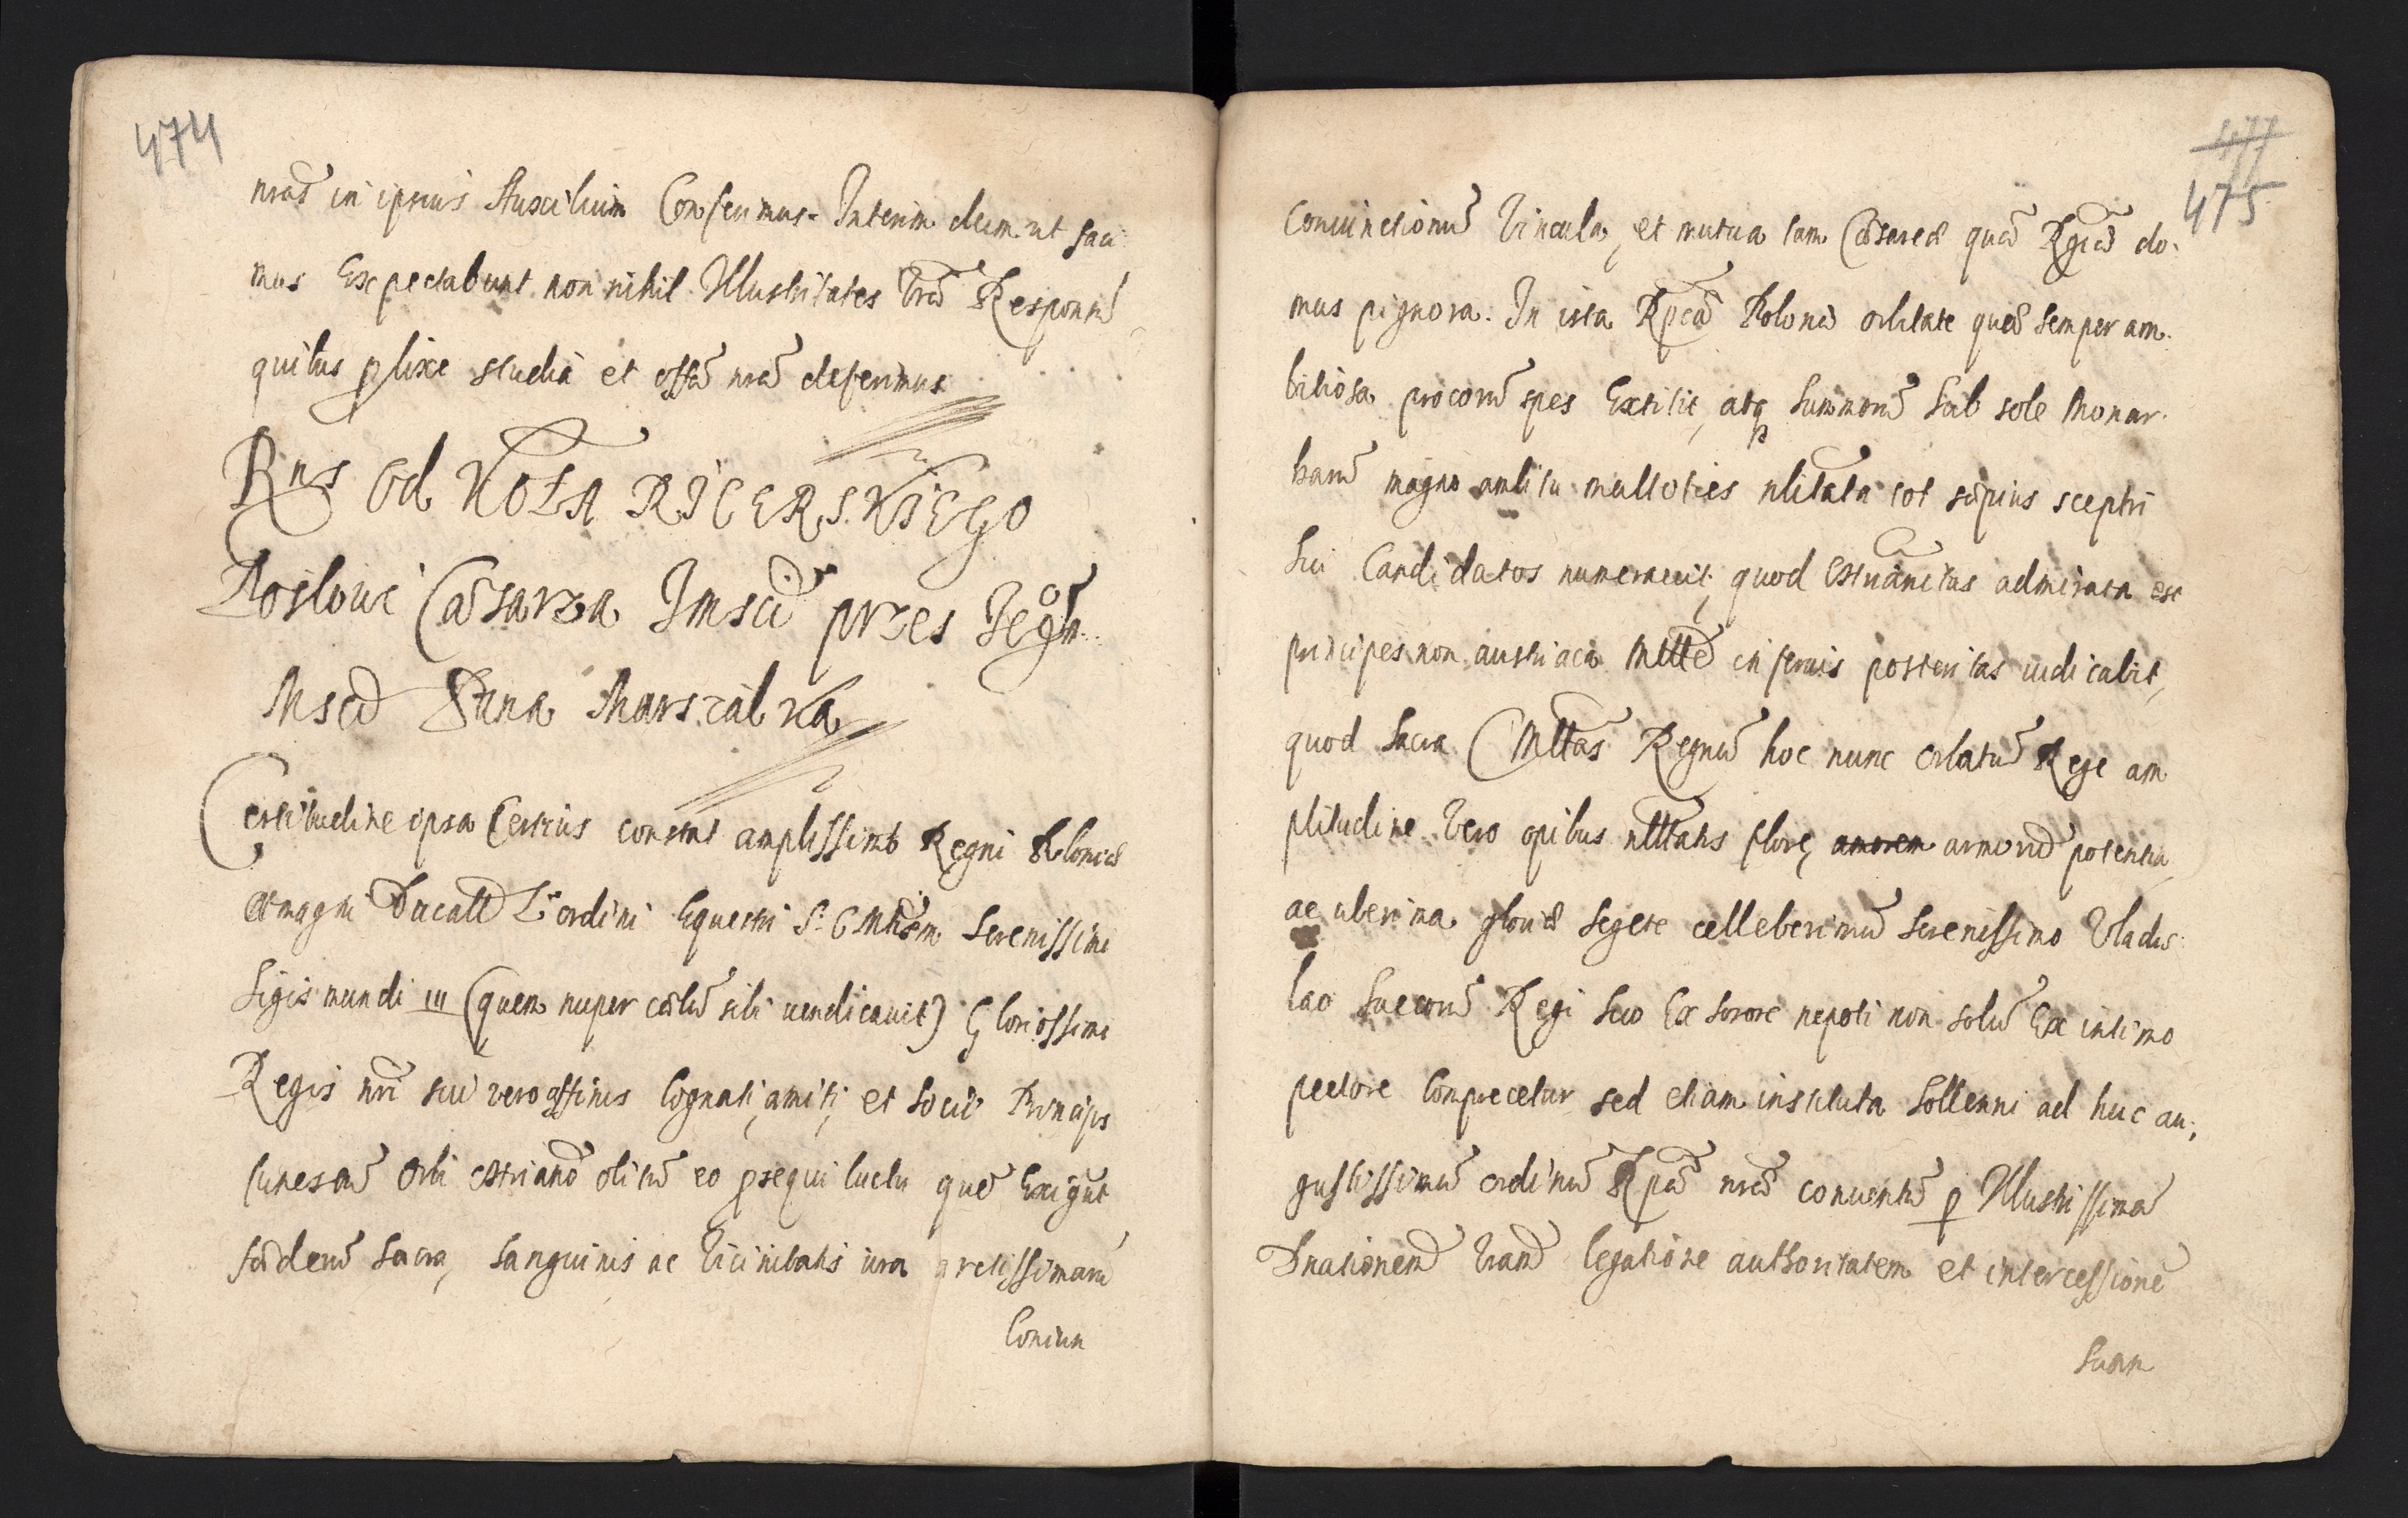 474
nrãs in ipsius Auxilium Conferimus. Interim dum ut faci
mus Expectabunt non nihil Illustritates Vrã Responsũ
quibus prolixe studia et offã nrã deferimus
Rns Od KOŁA RICERSKIEGO
Posłowi Cæsarza Imsci przes Jegõ
Msci Pana Marszalka
Certitudine ipsa Certius constat amplissimo Regni Poloniæ
et magni Ducatt L. ordini Equestri S. C. Mttem Serenissimi
Sigismundi III (quem nuper cælũ sibi uendicauit) Gloriossimi
Regis nrĩ sui vero affinis Cognati, amiti, et Socii Princips
funestũ Orbi Xtrianõ obitũ eo prosequi luctu quẽ Exigũt
fæderũ sacra, sanguinis ac Vicinitatis iura arctissimarũ
Coniun
477
475
Coniunctionũ Vincula, et mutua tam Cæsareæ quã Rgiæ do-
mus pignora. In ista Rpcæ Polonæ orbitate quæ semper am-
bitiosa procorũ spes Extitit, atq summorũ sub sole Monar-
harũ magno ambitu multoties nobilitata tot sæpius sceptri
sui Candidatos numerauit, quod Xtriãnitas admirata est
principes non austriaca Mtte inferiuis posteritas iudicabit,
quod Sacra C Mttas Regnũ hoc nunc orbatũ Rege am
plitudine Vero opibus nblttatis flore, amorem armorũ potentia
ac uberima gloriæ segete celleberimũ Serenissimo Vladis-
lao Suecorũ Regi suo Ex sorore nepoti non solũ Ex intimo
pectore Comprecetur sed etiam instituta Sollenni ad huc au-
gustissimũ ordinũ Rpcæ nræ conuentũ p Illustrissimã
Dnationem Vram legatione authoritatem et intercessionẽ
suam